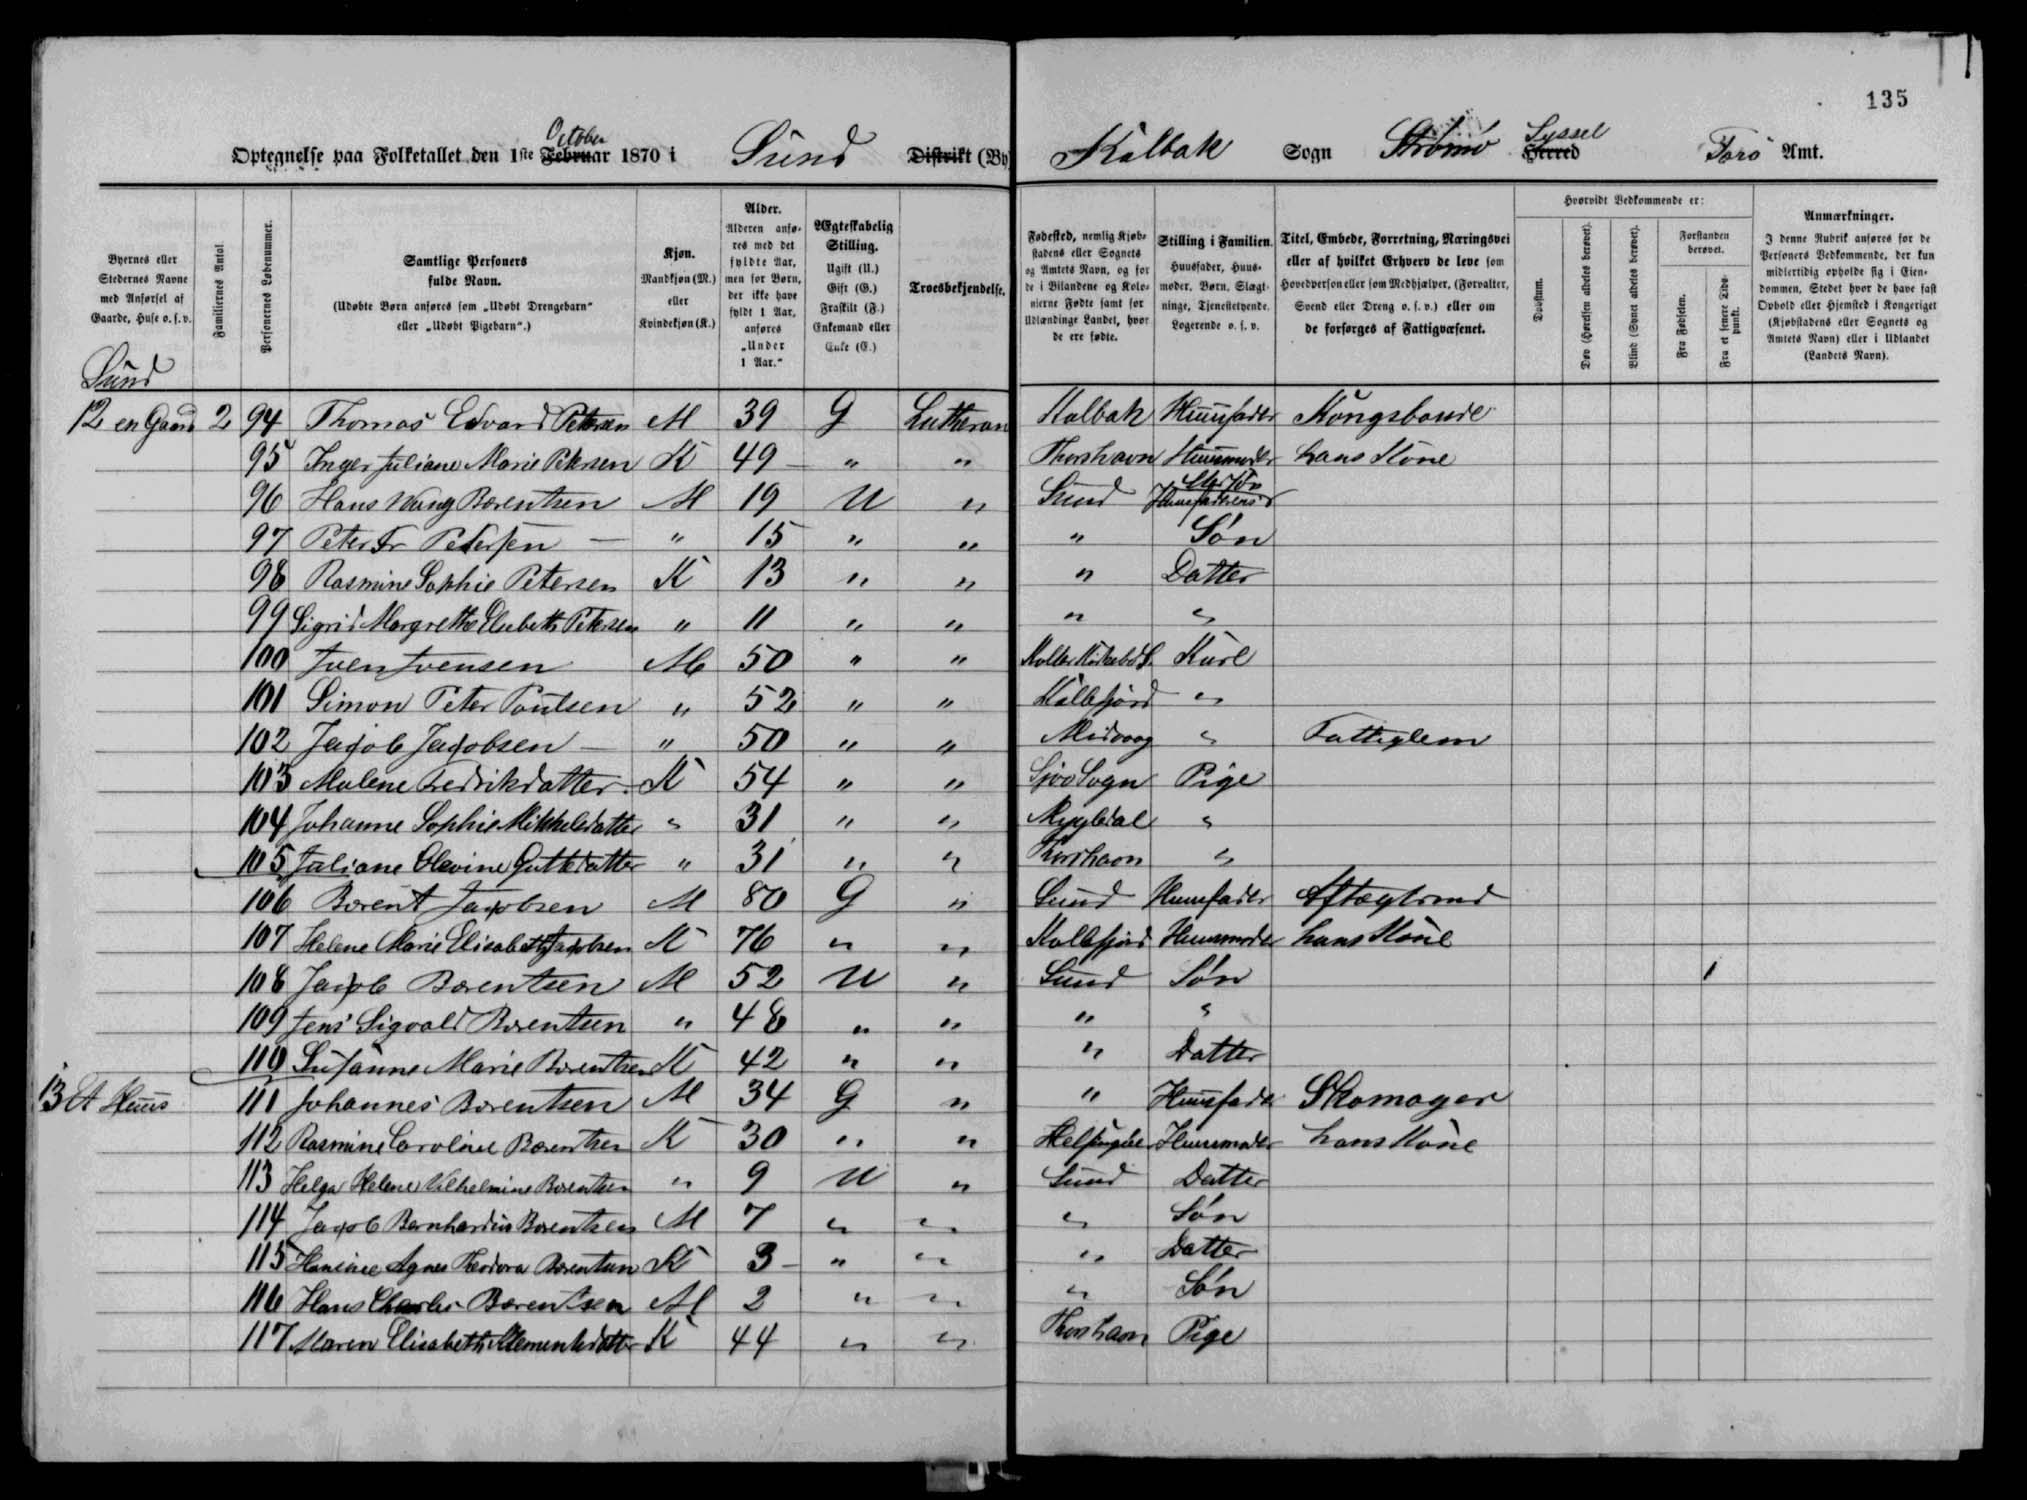 135
October
Optegnelse paa Folketallet den 1ste Februar 1870 i Sund Distrikt (By) Kalbak Sogn Strömö Herred Syssel Farö Amt.
Byernes eller Stedernes Navne med Anførsel af Gaarde, Huse o. s. v.
Familiernes Antal.
Personernes Løbenummer.
Samtlige Personers fulde Navn. (Udøbte Børn anføres som „Udøbt Drengebarn" eller „Udøbt Pigebarn".)
Kjøn. Mandkjøn (M.) eller Kvindekjøn (K.)
Alder. Alderen anføres med det fyldte Aar, men for Børn, der ikke have fyldt 1 Aar, anføres „Under 1 Aar."
Ægteskabelig Stilling. Ugift (U.) Gift (G.) Fraskilt (F.) Enkemand eller Enke (E.)
Troesbekjendelse.
Fødested, nemlig Kjøbstadens eller Sognets og Amtets Navn, og for de i Bilandene og Kolonierne Fødte samt for Udlændinge Landet, hvor de ere fødte.
Stilling i Familien. Huusfader, Huusmoder, Børn, Slægtninge, Tjenestetyende, Logerende o. s. v.
Titel, Embede, Forretning, Næringsvei eller af hvilket Erhverv de leve som Hovedperson eller som Medhjælper, (Forvalter, Svend eller Dreng o. s. v.) eller om de forsørges af Fattigvæsenet.
Hvorvidt Vedkommende er:
Døvstum.
Døv (Hørelsen aldeles berøvet).
Blind (Synet aldeles berøvet).
Forstanden berøvet.
Fra Fødselen.
Fra et senere Tidspunkt.
Anmærkninger. I denne Rubrik anføres for de Personers Vedkommende, der kun midlertidig opholde sig i Eiendommen, Stedet hvor de have fast Ophold eller Hjemsted i Kongeriget (Kjøbstadens eller Sognets og Amtets Navn) eller i Udlandet (Landets Navn).
Sund
12 en Gaard 2 94 Thomas Edvard Petersen M 39 G Lutheran Kalbak Huusfader Kongsbonde
95 Inger Juliane Marie Petersen K 49 " " Thorshavn Huusmoder hans Kone
96 Hans Wang Bærentsen M 19 U " Sund Huusfaderens
97 Peter Fr Petersen " 15 " " " Søn
98 Rasmine Sophie Petersen K 13 " " " Datter
99 Sigrid Margrethe Elsebeth Petersen " 11 " " " "
100 Joen Joensen M 50 " " Karl
101 Simon Peter Poulsen " 52 " " Kalbfjörd "
102 Jacob Jacobsen " 50 " " Midvaag " Fattiglem
103 Malene Fredrikdatter K 54 " " Sjov Sogn Pige
104 Johanne Sophie Mikkelsdatter " 31 " " Mygledal "
105 Juliane Olevine Guttedatter " 31 " " Thorshavn "
106 Bærent Jacobsen M 80 G " Sund Huusfader Aftægtsmd
107 Helene Marie Elisabeth Jacobsen K 76 " " Kalbfjörd Huusmoder hans Kone
108 Jacob Bærentsen M 52 U " Sund Søn 1
109 Jens Sigvald Bærentsen " 48 " " " "
110 Susanne Marie Bærentsen K 42 " " " Datter
13 Et Huus 111 Johannes Bærentsen M 34 G " " Huusfader Skomager
112 Rasmine Caroline Bærentsen K 30 " " Huusmoder hans Kone
113 Helga Helene Vilhelmine Bærentsen " 9 U " Sund Datter
114 Jacob Bernhardus Bærentsen M 7 " " " Søn
115 Hansine Agnes Theodora Bærentsen K 3 " " " Datter
116 Hans Charles Bærentsen M 2 " " " Søn
117 Maren Elisabeth Klementsdatter K 44 " " Thorshavn Pige